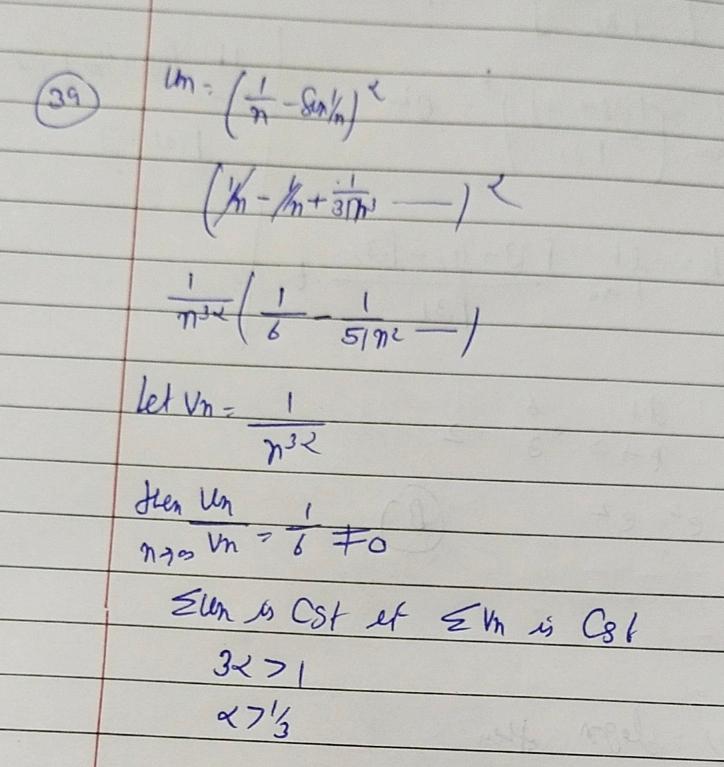 39 Un = (1/n - Sin 1/n)^α
(1/n - 1/n + 1/3!n³ —)^α
1/n^3α (1/6 - 1/5!n² —)
Let Vn = 1/n^3α
then n→∞ Un/Vn = 1/6 ≠ 0
ΣUn is Cgt if ΣVn is Cgt
3α > 1
α > 1/3